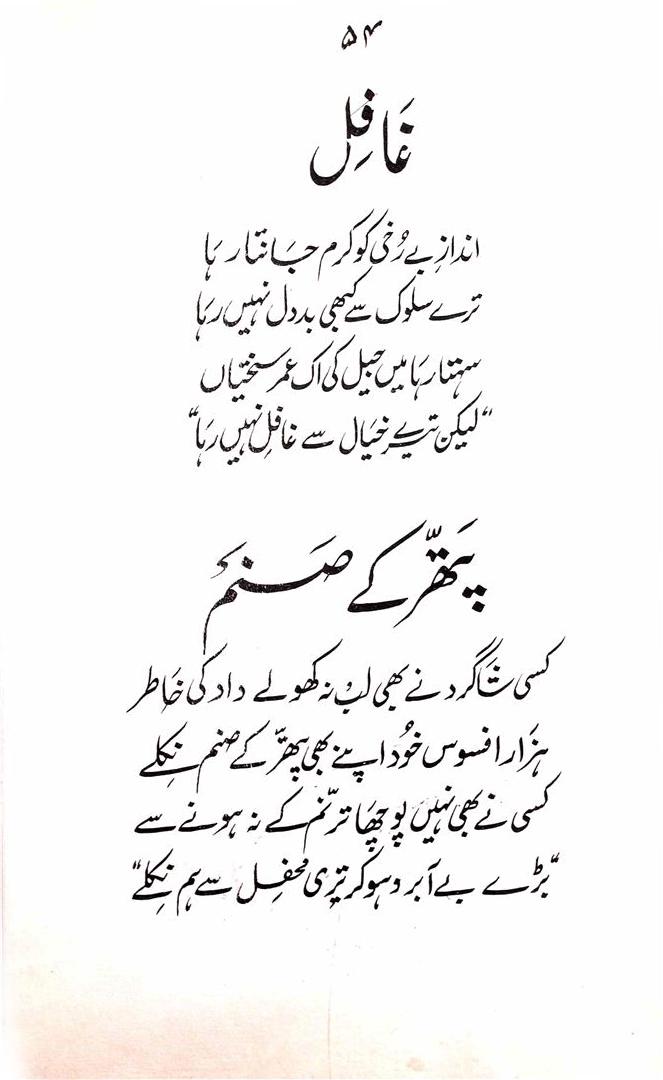 ۵۴
غَافِل
اندازِ بے رُخی کو کرم جَانتا رہا
ترے سلوک سے کبھی بد دل نہیں رہا
سہتا رہا میں جیل کی اک عمر سختیاں
"لیکن تیرے خیال سے غافِل نہیں رہا"
پتھّر کے صَنم
کسی شاگرد نے بھی لب نہ کھولے داد کی خَاطر
ہزار افسوس خُود اپنے بھی پتھّر کے صنم نِکلے
کسی نے بھی نہیں پوچھَا ترنّم کے نہ ہونے سے
"بڑے بے آبرو ہو کر تِری محفِل سے ہم نِکلے"